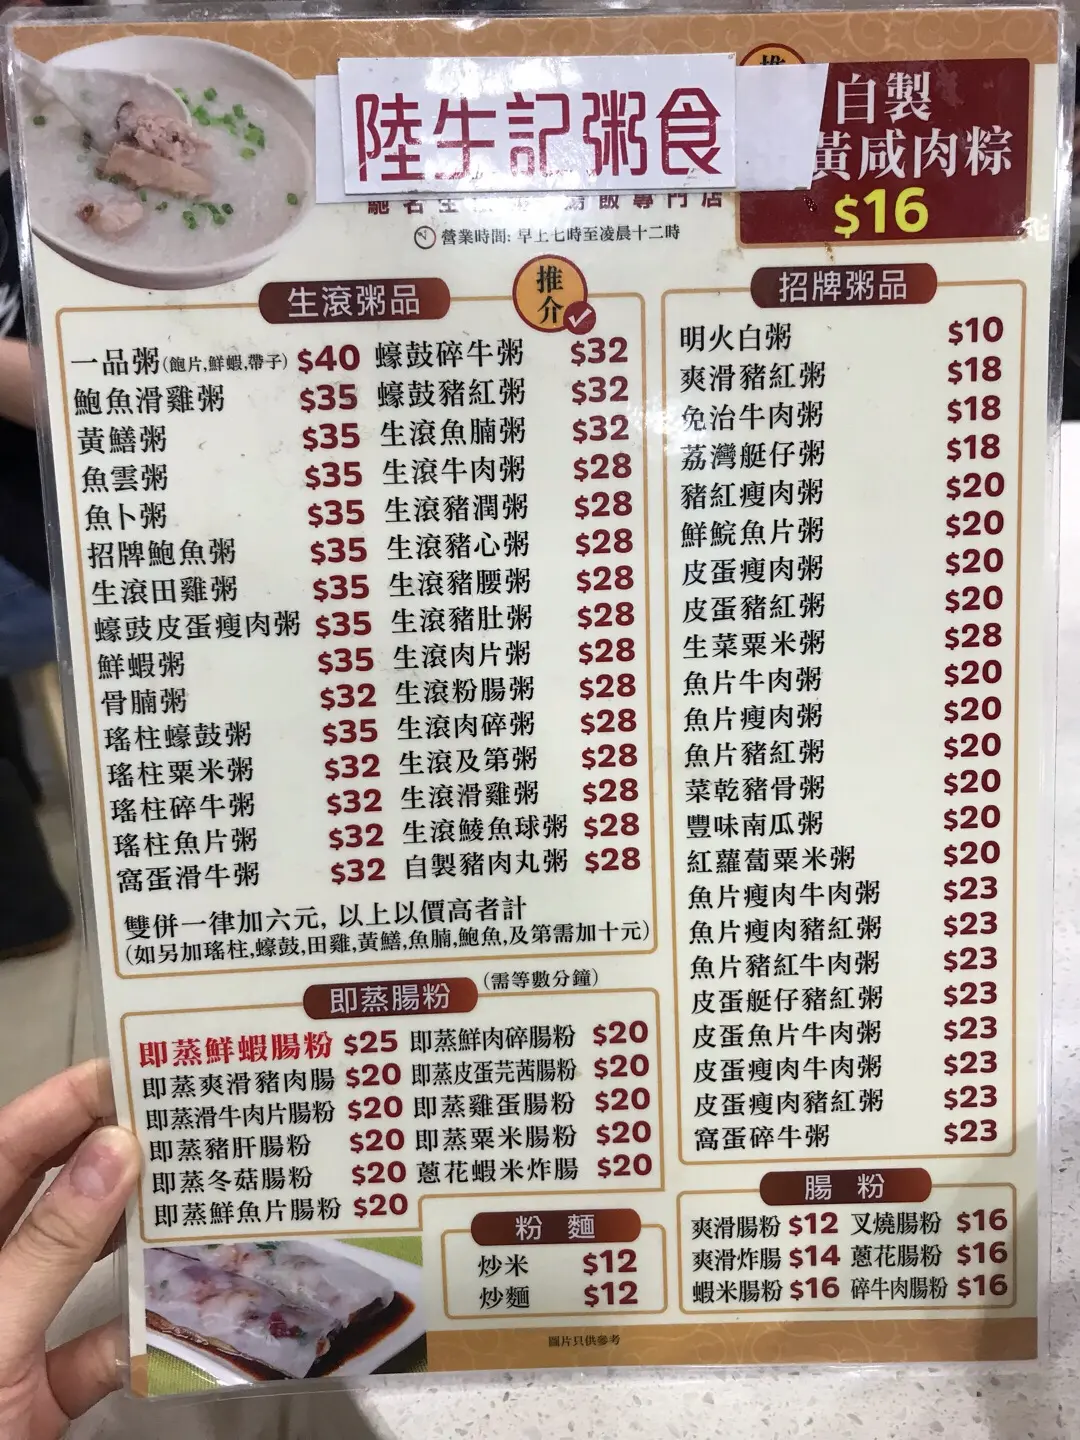 陸牛記粥食
推
自製
黃咸肉粽
$16
飯專門店
營業時間: 早上七時至凌晨十二時
生滾粥品
推介
一品粥(鮑片,鮮蝦,帶子) $40
鮑魚滑雞粥 $35
黃鱔粥 $35
魚雲粥 $35
魚卜粥 $35
招牌鮑魚粥 $35
生滾田雞粥 $35
蠔豉皮蛋瘦肉粥 $35
鮮蝦粥 $35
骨腩粥 $32
瑤柱蠔鼓粥 $35
瑤柱粟米粥 $32
瑤柱碎牛粥 $32
瑤柱魚片粥 $32
窩蛋滑牛粥 $32
蠔鼓碎牛粥 $32
蠔鼓豬紅粥 $32
生滾魚腩粥 $32
生滾牛肉粥 $28
生滾豬潤粥 $28
生滾豬心粥 $28
生滾豬腰粥 $28
生滾豬肚粥 $28
生滾肉片粥 $28
生滾粉腸粥 $28
生滾肉碎粥 $28
生滾及第粥 $28
生滾滑雞粥 $28
生滾鯪魚球粥 $28
自製豬肉丸粥 $28
雙併一律加六元, 以上以價高者計
(如另加瑤柱,蠔鼓,田雞,黃鱔,魚腩,鮑魚,及第需加十元)
招牌粥品
明火白粥 $10
爽滑豬紅粥 $18
免治牛肉粥 $18
荔灣艇仔粥 $18
豬紅瘦肉粥 $20
鮮鯇魚片粥 $20
皮蛋瘦肉粥 $20
皮蛋豬紅粥 $20
生菜粟米粥 $28
魚片牛肉粥 $20
魚片瘦肉粥 $20
魚片豬紅粥 $20
菜乾豬骨粥 $20
豐味南瓜粥 $20
紅蘿蔔粟米粥 $20
魚片瘦肉牛肉粥 $23
魚片瘦肉豬紅粥 $23
魚片豬紅牛肉粥 $23
皮蛋艇仔豬紅粥 $23
皮蛋魚片牛肉粥 $23
皮蛋瘦肉牛肉粥 $23
皮蛋瘦肉豬紅粥 $23
窩蛋碎牛粥 $23
即蒸腸粉 (需等數分鐘)
即蒸鮮蝦腸粉 $25
即蒸爽滑豬肉腸 $20
即蒸滑牛肉片腸粉 $20
即蒸豬肝腸粉 $20
即蒸冬菇腸粉 $20
即蒸鮮魚片腸粉 $20
即蒸鮮肉碎腸粉 $20
即蒸皮蛋芫茜腸粉 $20
即蒸雞蛋腸粉 $20
即蒸粟米腸粉 $20
蔥花蝦米炸腸 $20
粉麵
炒米 $12
炒麵 $12
腸粉
爽滑腸粉 $12
爽滑炸腸 $14
蝦米腸粉 $16
叉燒腸粉 $16
蔥花腸粉 $16
碎牛肉腸粉 $16
圖片只供參考